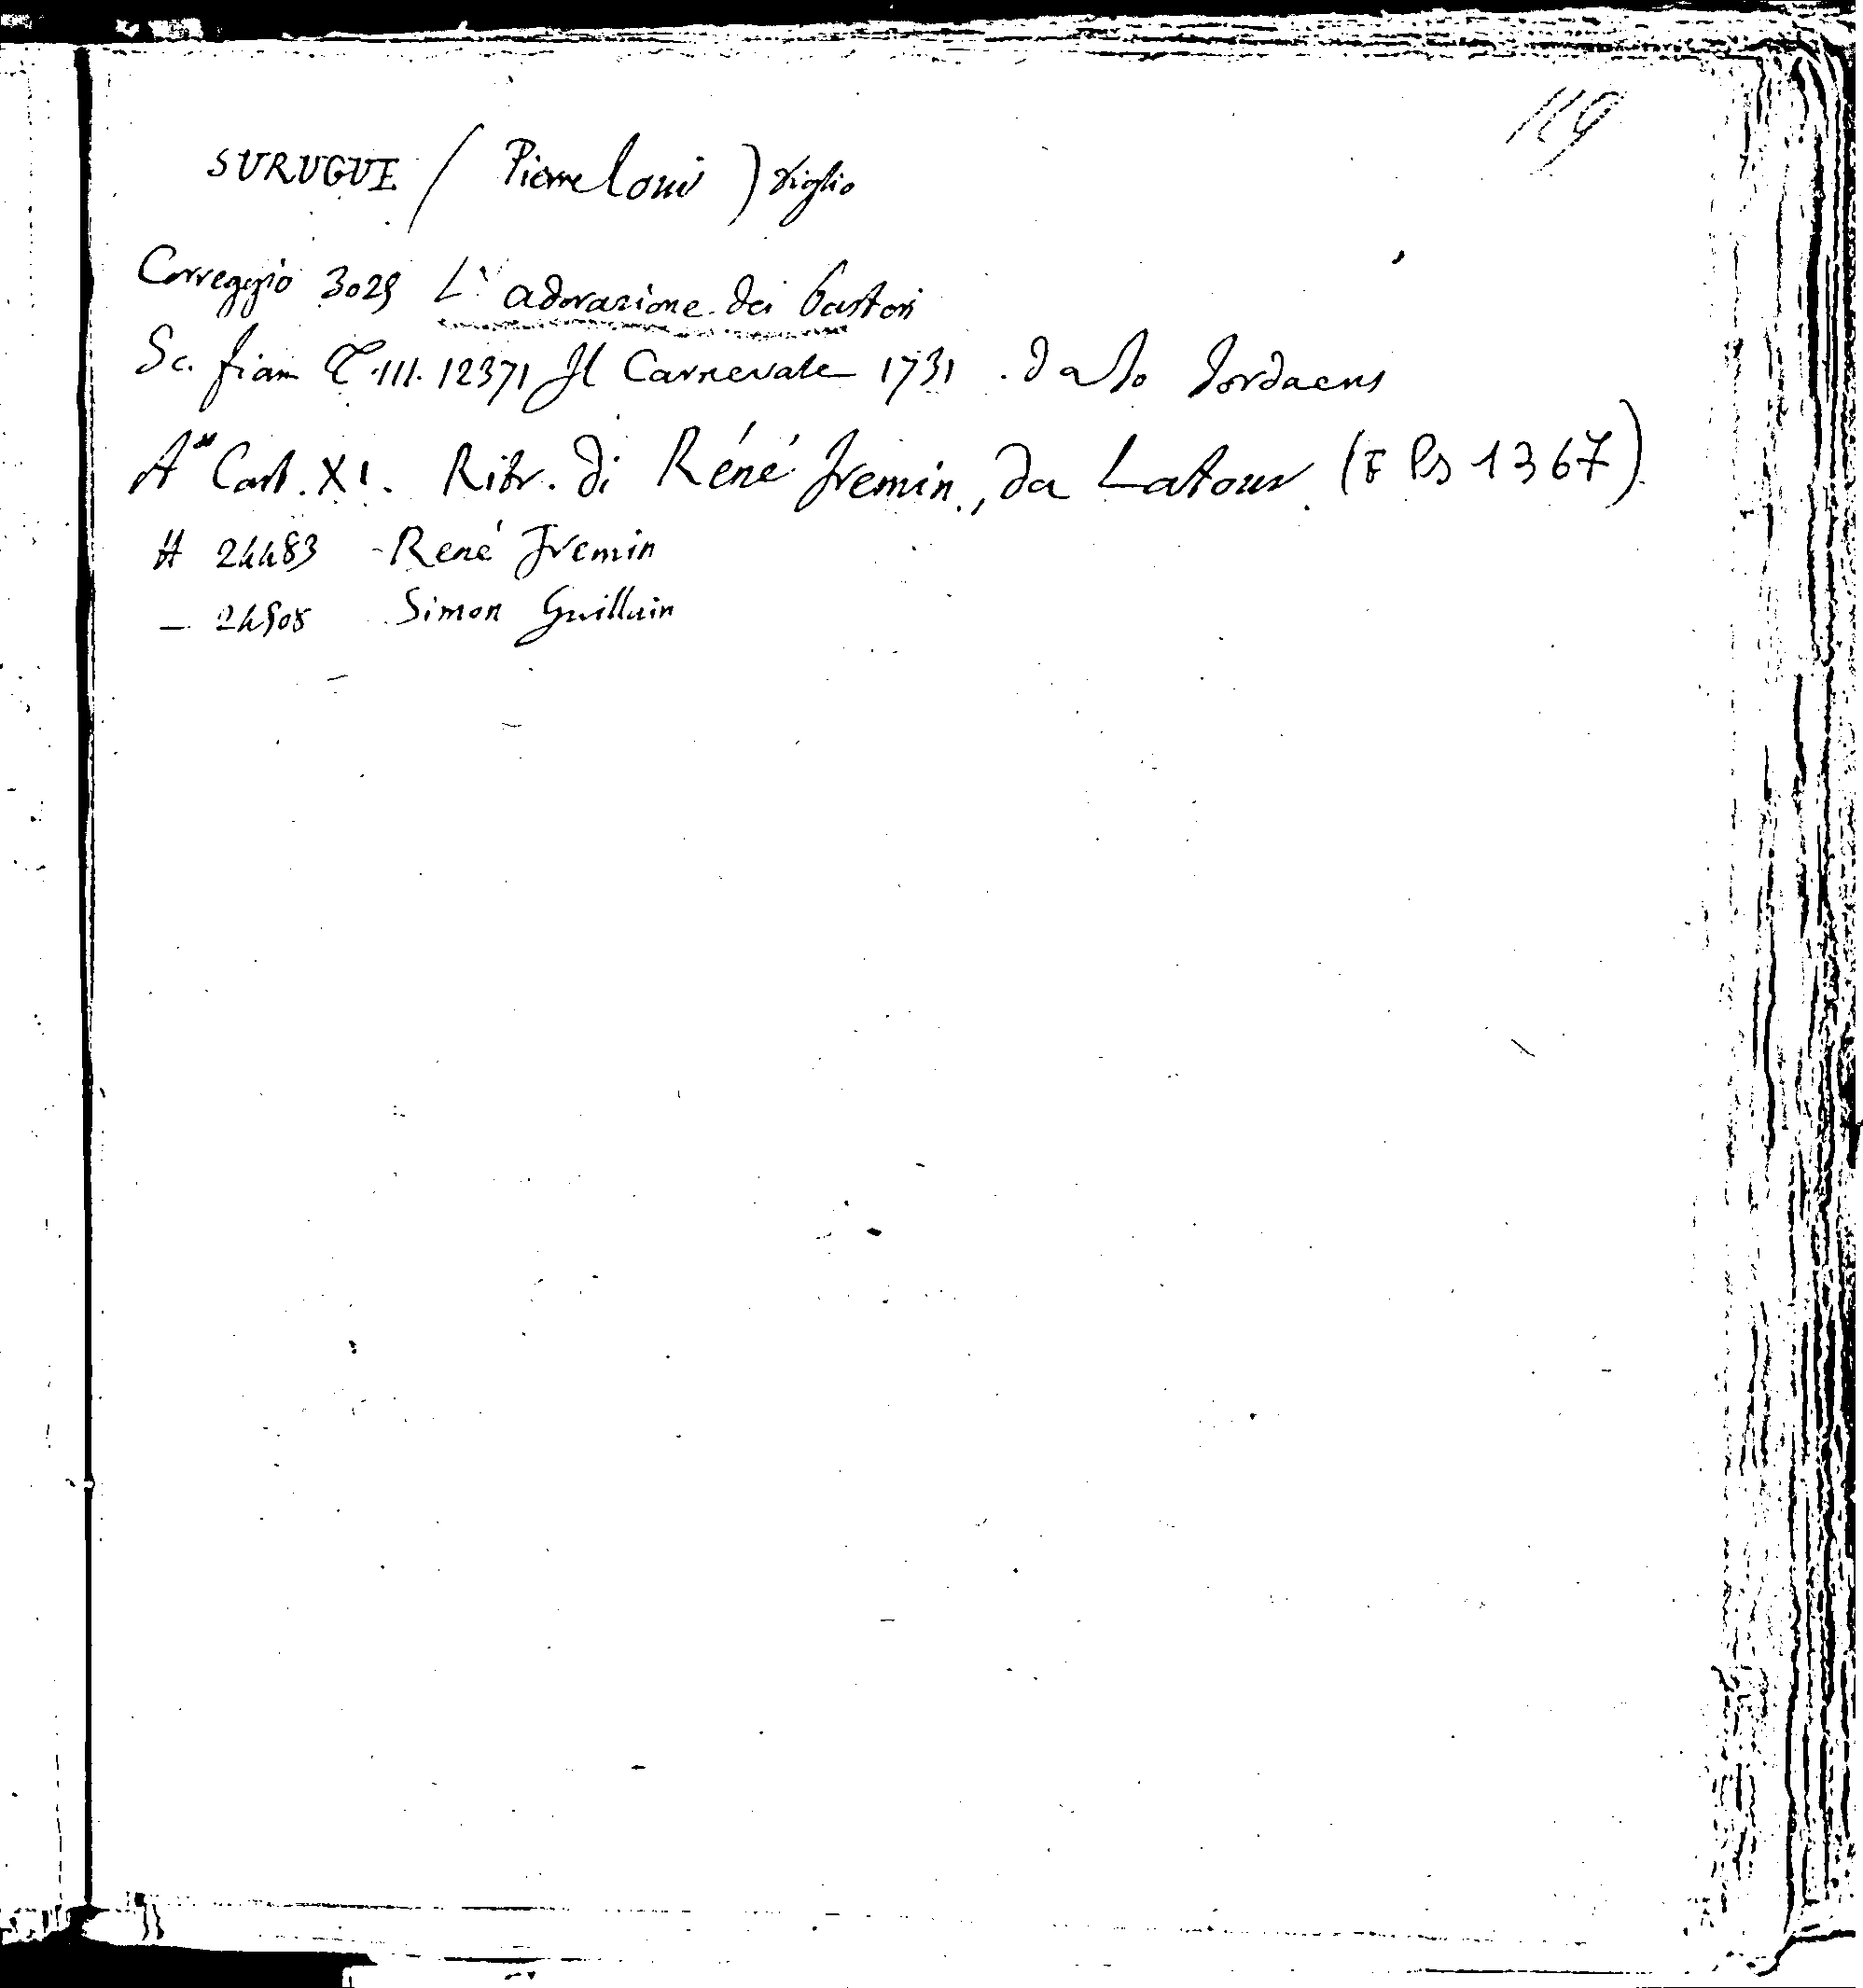 119
SURUGUE (Pierre Louis) figlio
Correggio 3029 L'adorazione dei Pastori
Sc. fiam III. 12371 Il Carnevale 1731. da Jordaens
Aº Cart. XI. Ritr. di Réné Fremin, da Latour (F Ps 1367)
H 24483 - René Fremin
— 24508 Simon Guillain